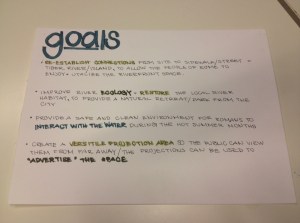 goals
• RE-ESTABLISH CONNECTIONS FROM SITE TO
TIBER RIVER/ISLAND, TO ALLOW THE PEOPLE OF ROME TO
ENJOY + UTILIZE THE RIVERFRONT SPACE.
• IMPROVE RIVER ECOLOGY + RESTORE THE LOCAL RIVER
HABITAT, TO PROVIDE A NATURAL RETREAT/ FROM THE
CITY
• PROVIDE A SAFE AND CLEAN ENVIRONMENT FOR ROMANS TO
INTERACT WITH THE WATER DURING THE HOT SUMMER MONTHS
• CREATE A VERSITILE PROJECTION AREA SO THE PUBLIC CAN VIEW
THEM FROM FAR AWAY/THE PROJECTIONS CAN BE USED TO
"ADVERTISE" THE SPACE.